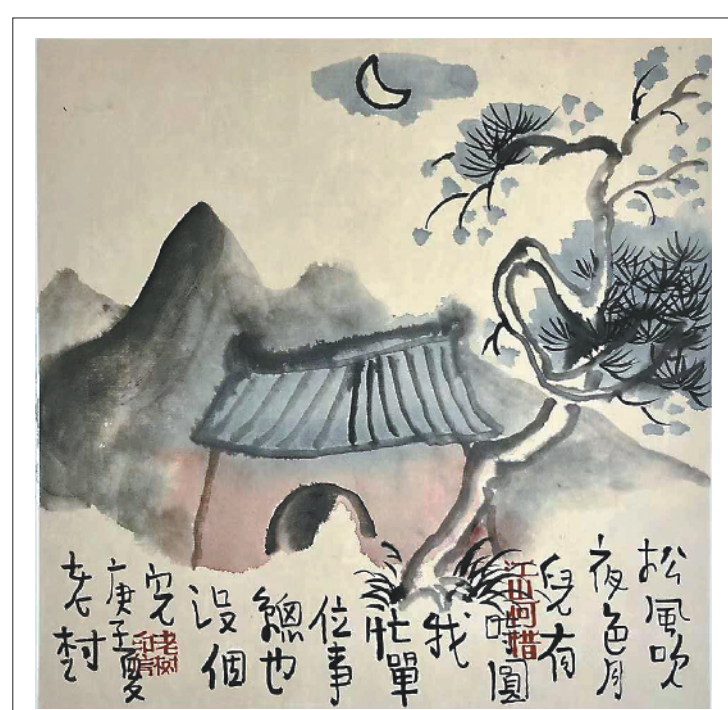 松風吹
夜色月
兒有
時圓
我
忙單
位事
總也
沒個
完
庚子夏
老村
江山何惜